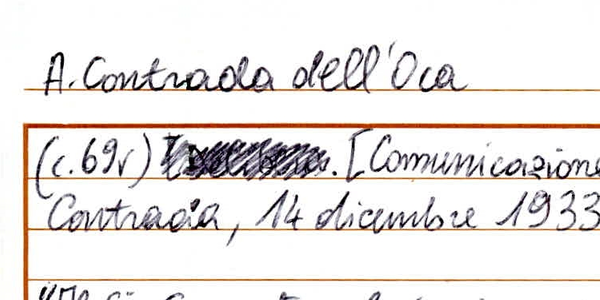 A. Contrada dell'Oca
(c.69r) . [Comunicazione
Contrada, 14 dicembre 1933